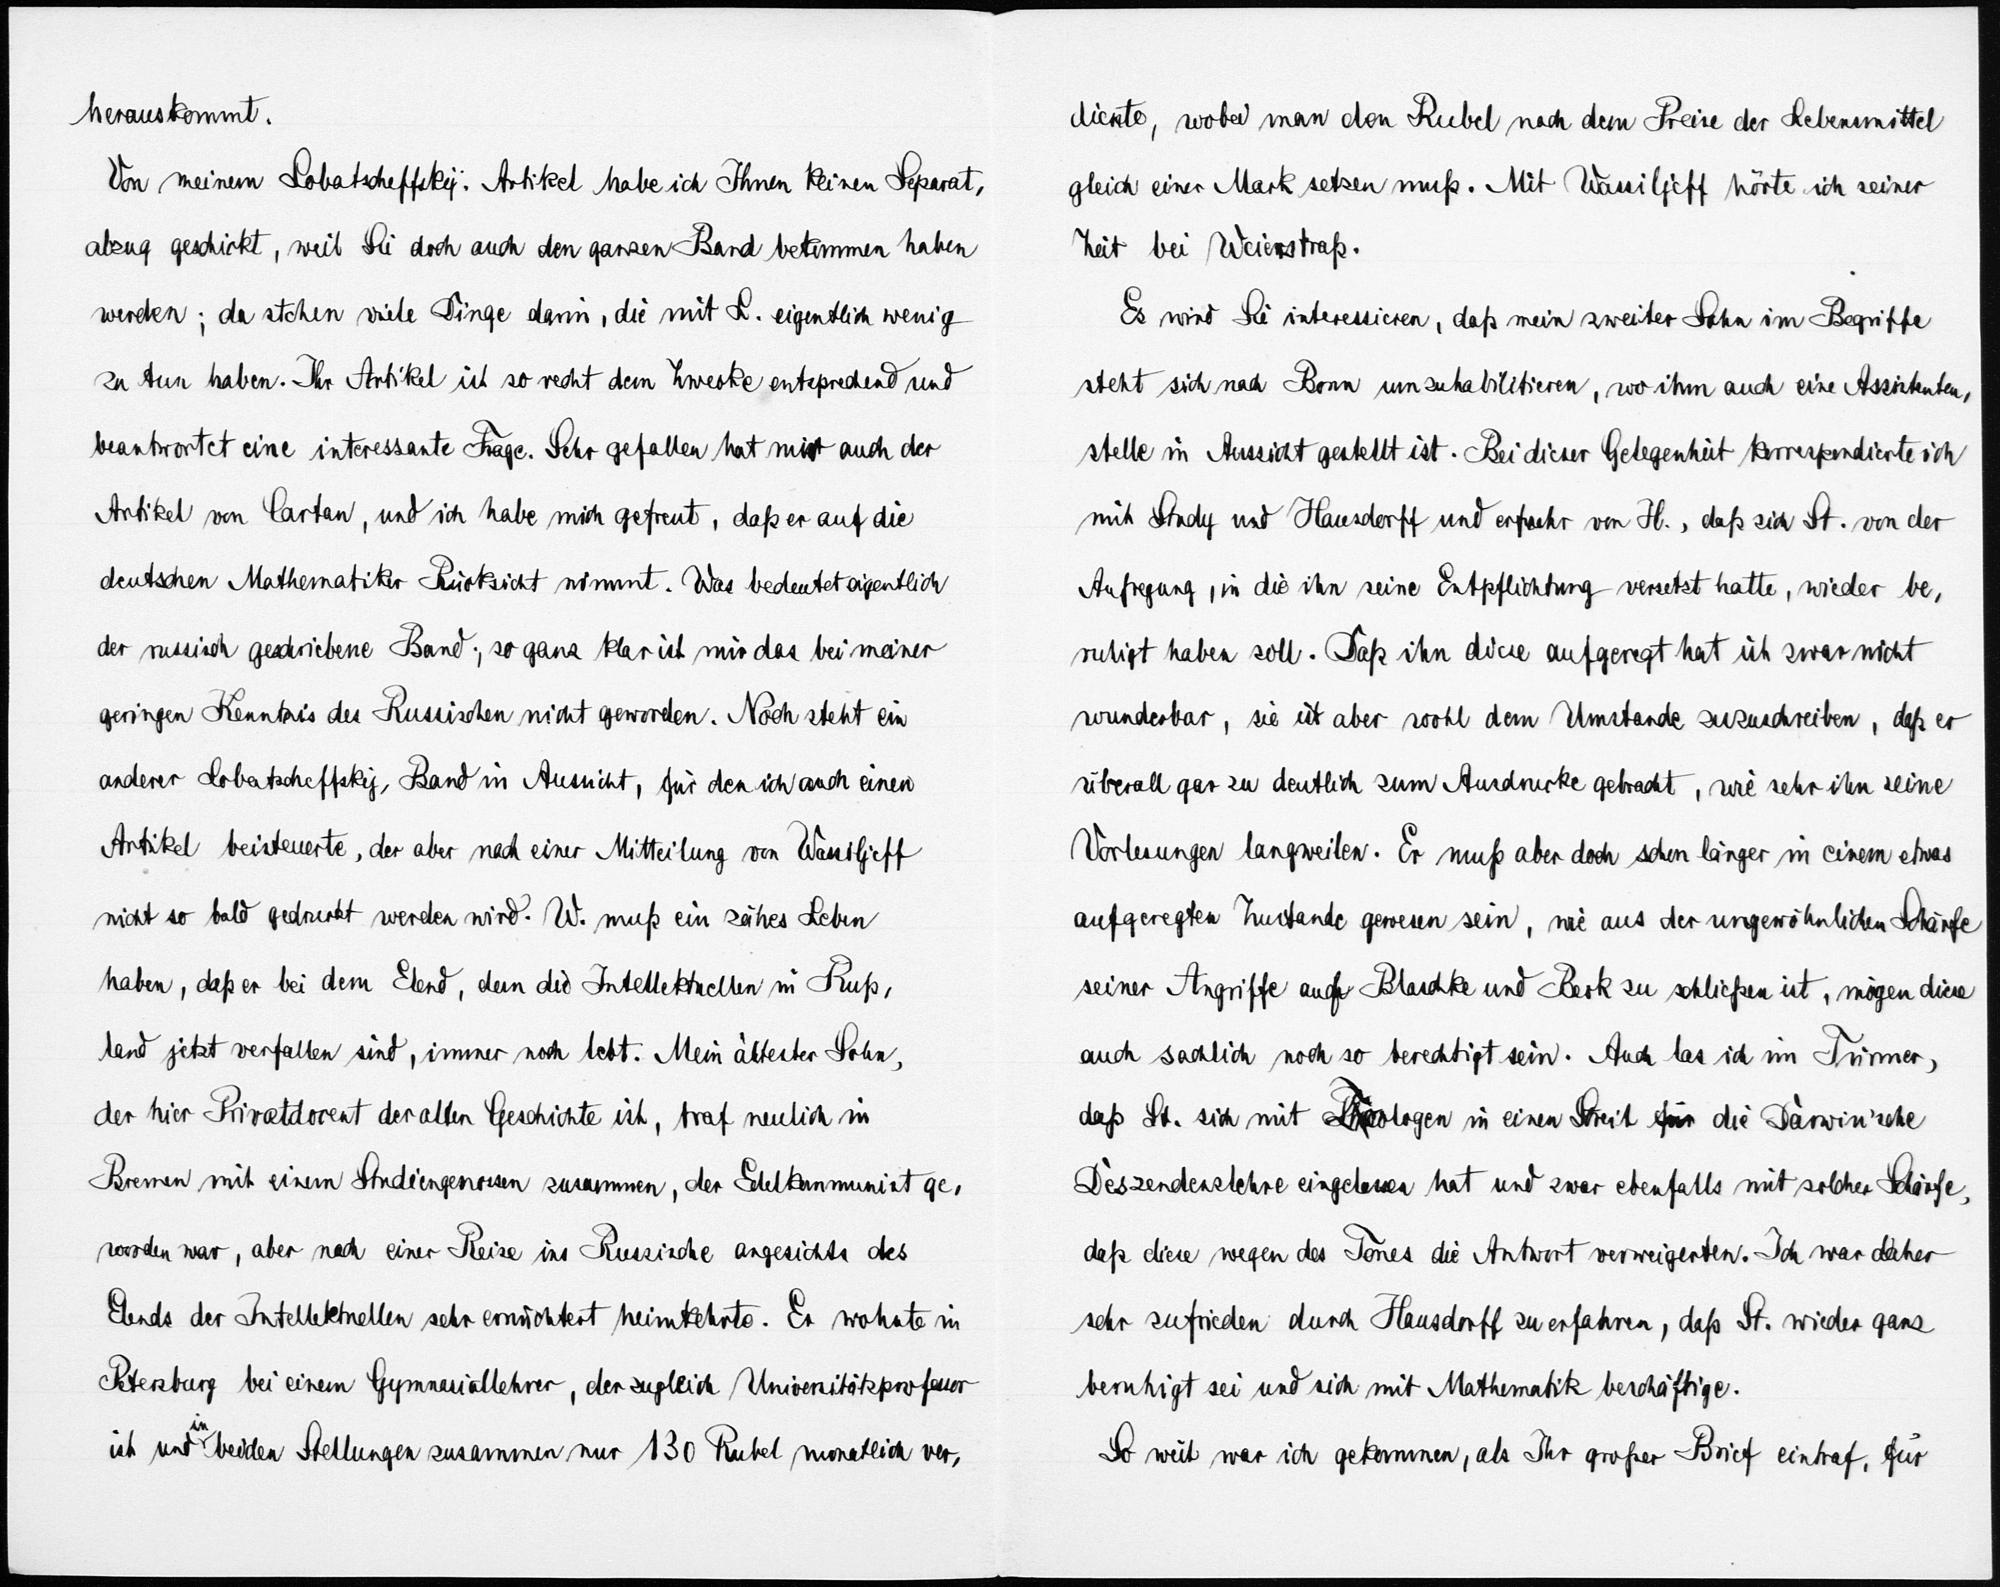 herauskommt.
Von meinem Lobatscheffskij-Artikel habe ich Ihnen keinen Separat-
abzug geschickt, weil Sie doch auch den ganzen Band bekommen haben
werden; da stehen viele Dinge darin, die mit L. eigentlich wenig
zu tun haben. Ihr Artikel ist so recht dem Zwecke entsprechend und
beantwortet eine interessante Frage. Sehr gefallen hat mir auch der
Artikel von Cartan, und ich habe mich gefreut, daß er auf die
deutschen Mathematiker Rücksicht nimmt. Was bedeutet eigentlich
der russisch geschriebene Band; so ganz klar ist mir das bei meiner
geringen Kenntnis des Russischen nicht geworden. Noch steht ein
anderer Lobatscheffskij-Band in Aussicht, für den ich auch einen
Artikel beisteuerte, der aber nach einer Mitteilung von Wassiljeff
nicht so bald gedruckt werden wird. W. muß ein zähes Leben
haben, daß er bei dem Elend, dem die Intellektuellen in Ruß-
land jetzt verfallen sind, immer noch lebt. Mein ältester Sohn,
der hier Privatdocent der alten Geschichte ist, traf neulich in
Bremen mit einem Studiengenossen zusammen, der Edelkommunist ge-
worden war, aber nach einer Reise ins Russische angesichts des
Elends der Intellektuellen sehr ernüchtert heimkehrte. Er wohnte in
Petersburg bei einem Gymnasiallehrer, der zugleich Universitätsprofessor
ist und in beiden Stellungen zusammen nur 130 Rubel monatlich ver-
diente, wobei man den Rubel nach dem Preise der Lebensmittel
gleich einer Mark setzen muß. Mit Wassiljeff hörte ich seiner
Zeit bei Weierstraß.
Es wird Sie interessieren, daß mein zweiter Sohn im Begriffe
steht sich nach Bonn umzuhabilitieren, wo ihm auch eine Assistenten-
stelle in Aussicht gestellt ist. Bei dieser Gelegenheit korrespondierte ich
mit Study und Hausdorff und erfuhr von H., daß sich St. von der
Aufregung, in die ihn seine Entpflichtung versetzt hatte, wieder be-
ruhigt haben soll. Daß ihn diese aufgeregt hat ist zwar nicht
wunderbar, sie ist aber wohl dem Umstande zuzuschreiben, daß er
überall gar zu deutlich zum Ausdrucke gebracht, wie sehr ihn seine
Vorlesungen langweilen. Er muß aber doch schon länger in einem etwas
aufgeregten Zustande gewesen sein, wie aus der ungewöhnlichen Schärfe
seiner Angriffe auf Blaschke und Berk zu schließen ist, mögen diese
auch sachlich noch so berechtigt sein. Auch las ich im Türmer,
daß St. sich mit Theologen in einen Streit für die Darwin'sche
Deszendenzlehre eingelassen hat und zwar ebenfalls mit solcher Schärfe,
daß diese wegen des Tones die Antwort verweigerten. Ich war daher
sehr zufrieden durch Hausdorff zu erfahren, daß St. wieder ganz
beruhigt sei und sich mit Mathematik beschäftige.
So weit war ich gekommen, als Ihr großer Brief eintraf, für